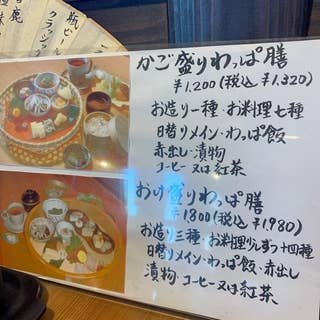 かご盛りわっぱ膳
¥1,200(税込¥1,320)
お造り一種・お料理七種
日替りメイン・わっぱ飯
赤出し・漬物
コーヒー又は紅茶
おけ盛りわっぱ膳
¥1,800(税込¥1,980)
お造り三種・お料理少しずつ十四種
日替りメイン・わっぱ飯・赤出し
漬物・コーヒー又は紅茶
瓶ビー
クラシッ